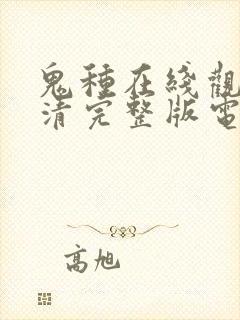 鬼種在綫觀
清完整版電
高旭